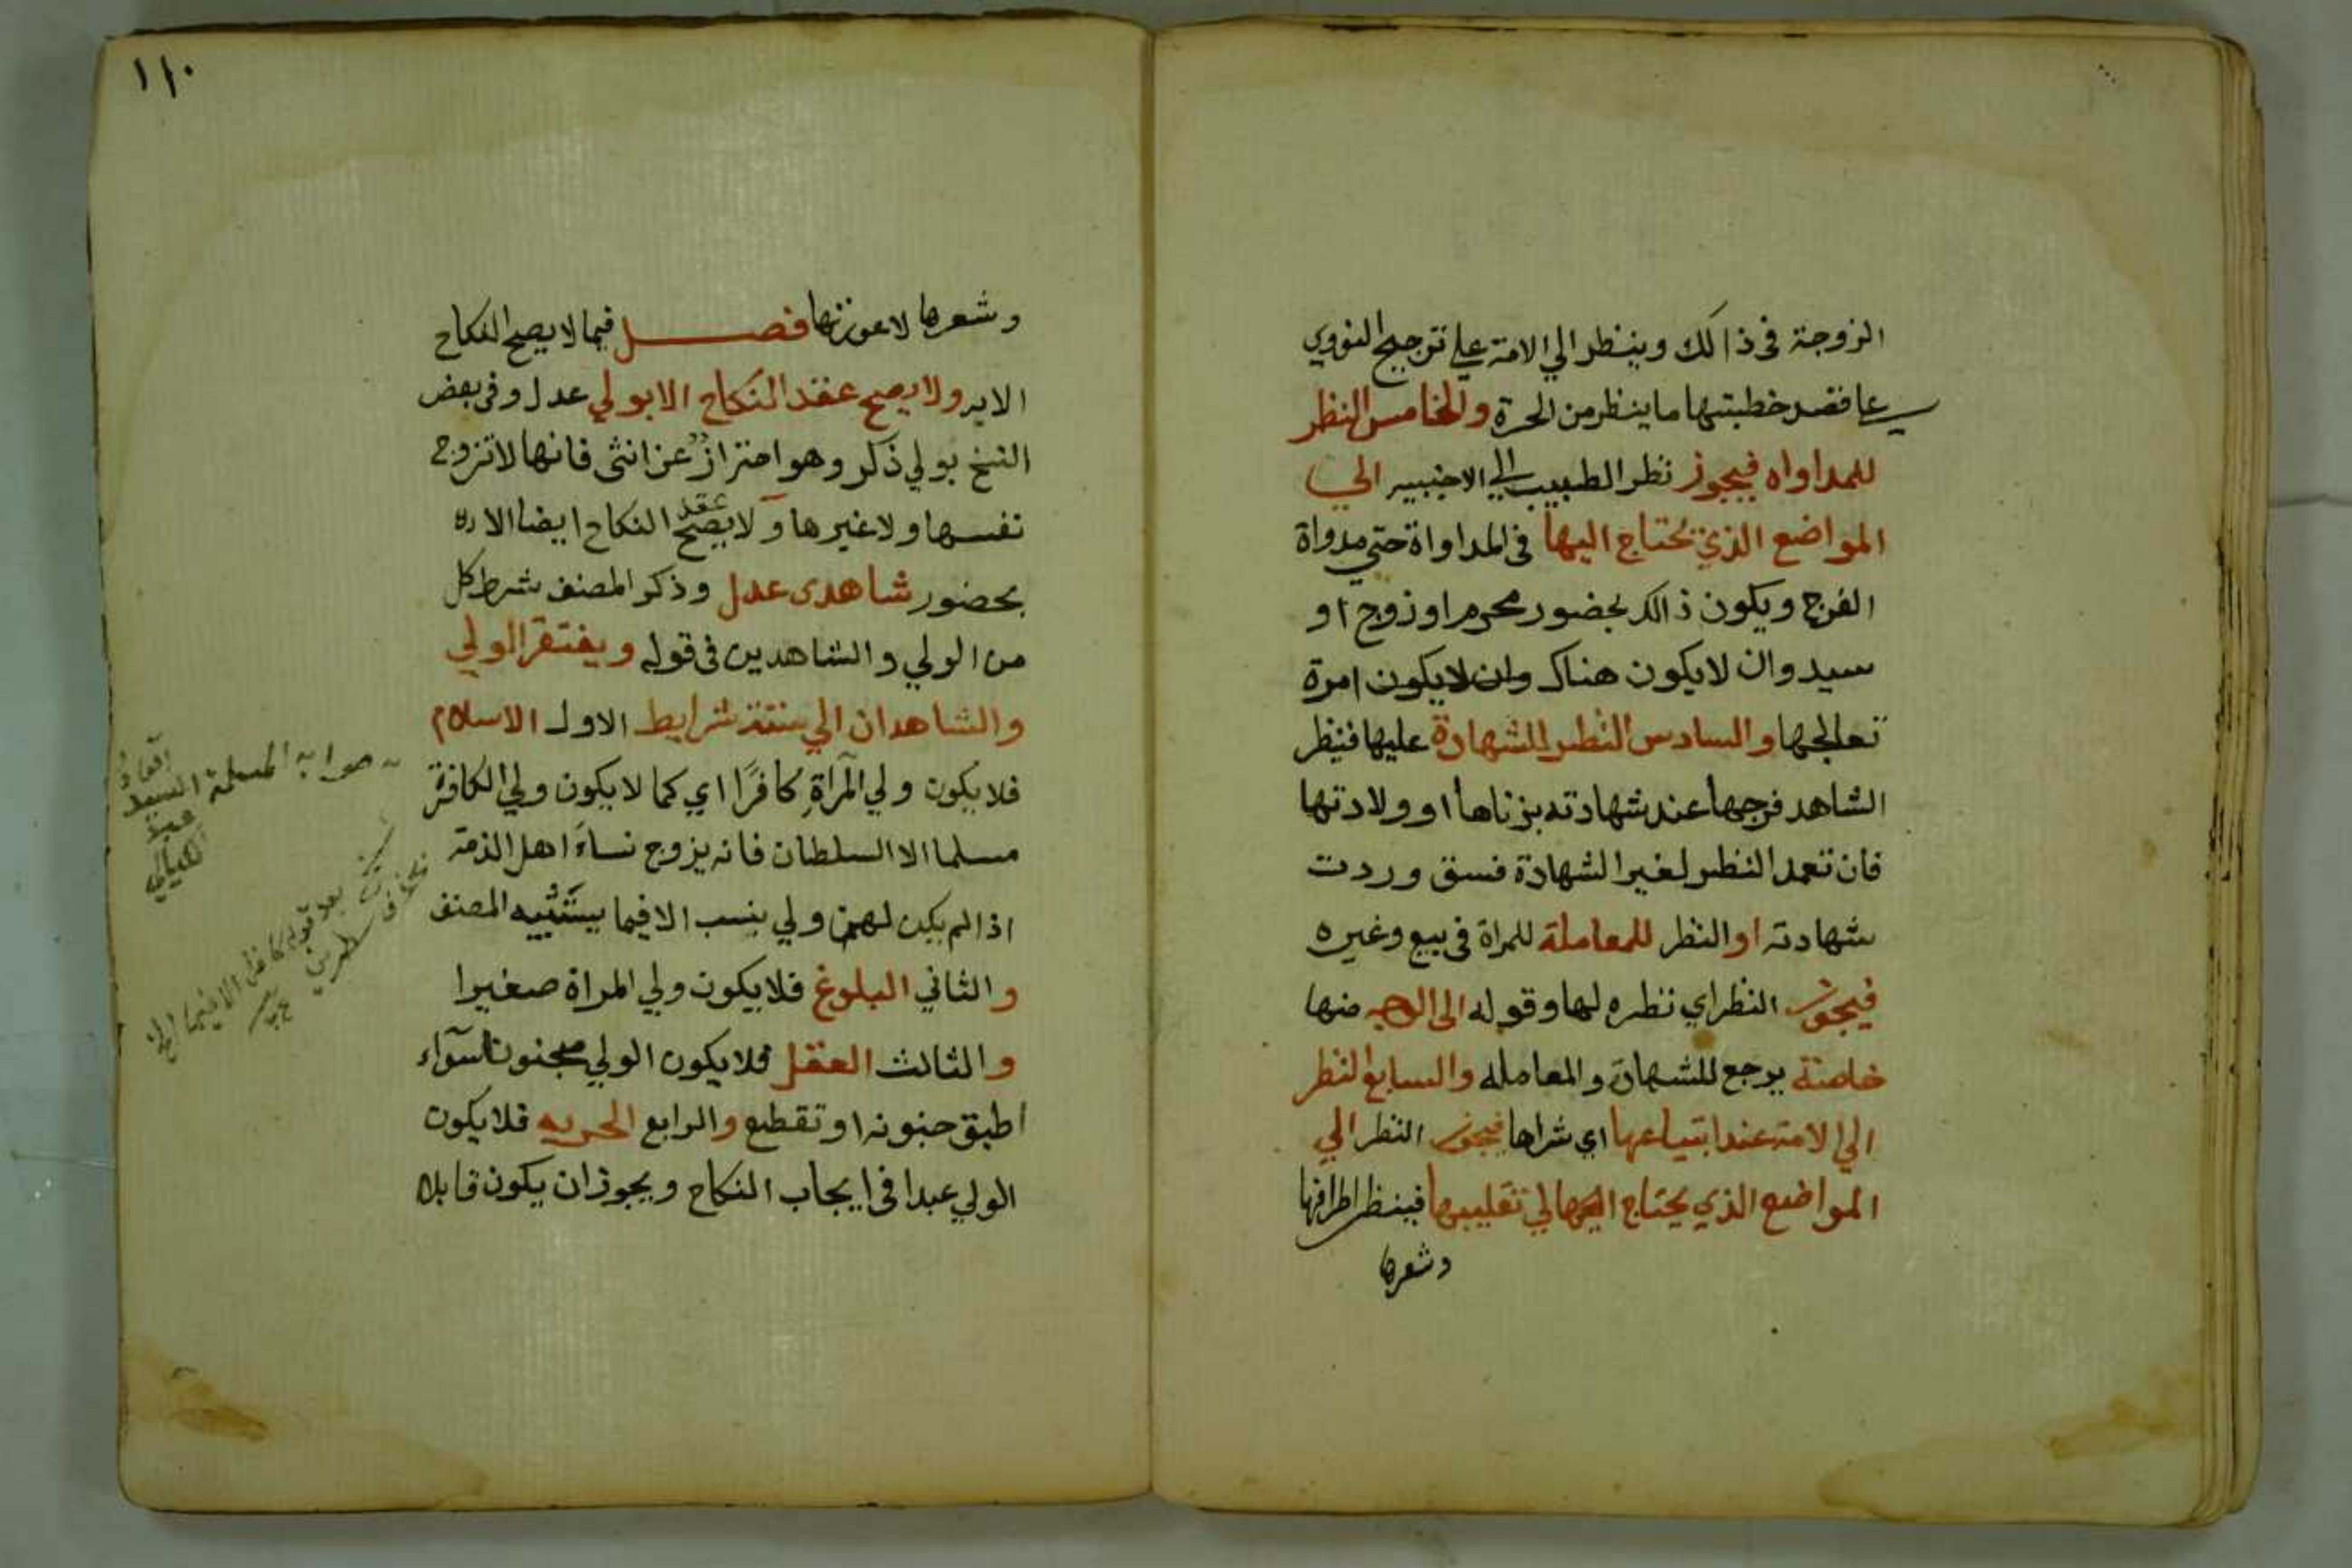 الزوجة فى ذالك وينظر الي الامة على ترجيح النووي
عا قصد خطبتها ما ينظر من الحرة والخامس النظر
للمداواه فيجوز نظر الطبيب الي الاجنبيه الي
المواضع الذي يحتاج اليها فى المداواة حتي مدواة
الفرج ويكون ذالك بحضور محرم او زوج او
سيد وان لا يكون هناك وان لا يكون امرة
تعالجها والسادس النظر للشهادة عليها فينظر
الشاهد فرجها عند شهادته بزناها او ولادتها
فان تعمد النظر لغير الشهادة فسق وردت
شهادته او النظر للمعاملة للمراة فى بيع وغيره
فيجوز النظر اي نظره لها وقوله الى الوجه منها
خاصة يرجع للشهادة والمعامله والسابع النظر
الي الامة عند ابتياعها اي شراها فيجوز النظر الي
المواضع الذي يحتاج اليها لي تقليبها فينظر اطرافها
وشعرها
١١٠
وشعرها لا عورتها فصل فيما لا يصح النكاح
الابه ولا يصح عقد النكاح الا بولي عدل وفى بعض
النسخ بولي ذكر وهو احتراز عن انثى فانها لا تزوج
نفسها ولا غيرها و لا يصح عقد النكاح ايضا الا
بحضور شاهدى عدل وذكر المصنف شرط كل
من الولي والشاهدين فى قوله ويفتقر الولي
والشاهدان الي ستة شرايط الاول الاسلام
فلا يكون ولي المرآة كافرًا اي كما لا يكون ولي الكافرة
مسلما الا السلطان فانه يزوج نساء اهل الذمة
اذا لم يكن لهن ولي بنسب الا فيما يستثنيه المصنف
والثاني البلوغ فلا يكون ولي المراة صغيرا
والثالث العقل فلا يكون الولي مجنونا سوآء
اطبق جنونه او تقطع والرابع الحريه فلا يكون
الولي عبدا فى ايجاب النكاح ويجوز ان يكون قابلا
صوابه المسلمة السيد
بعد قوله كافرا الا فيما الخ